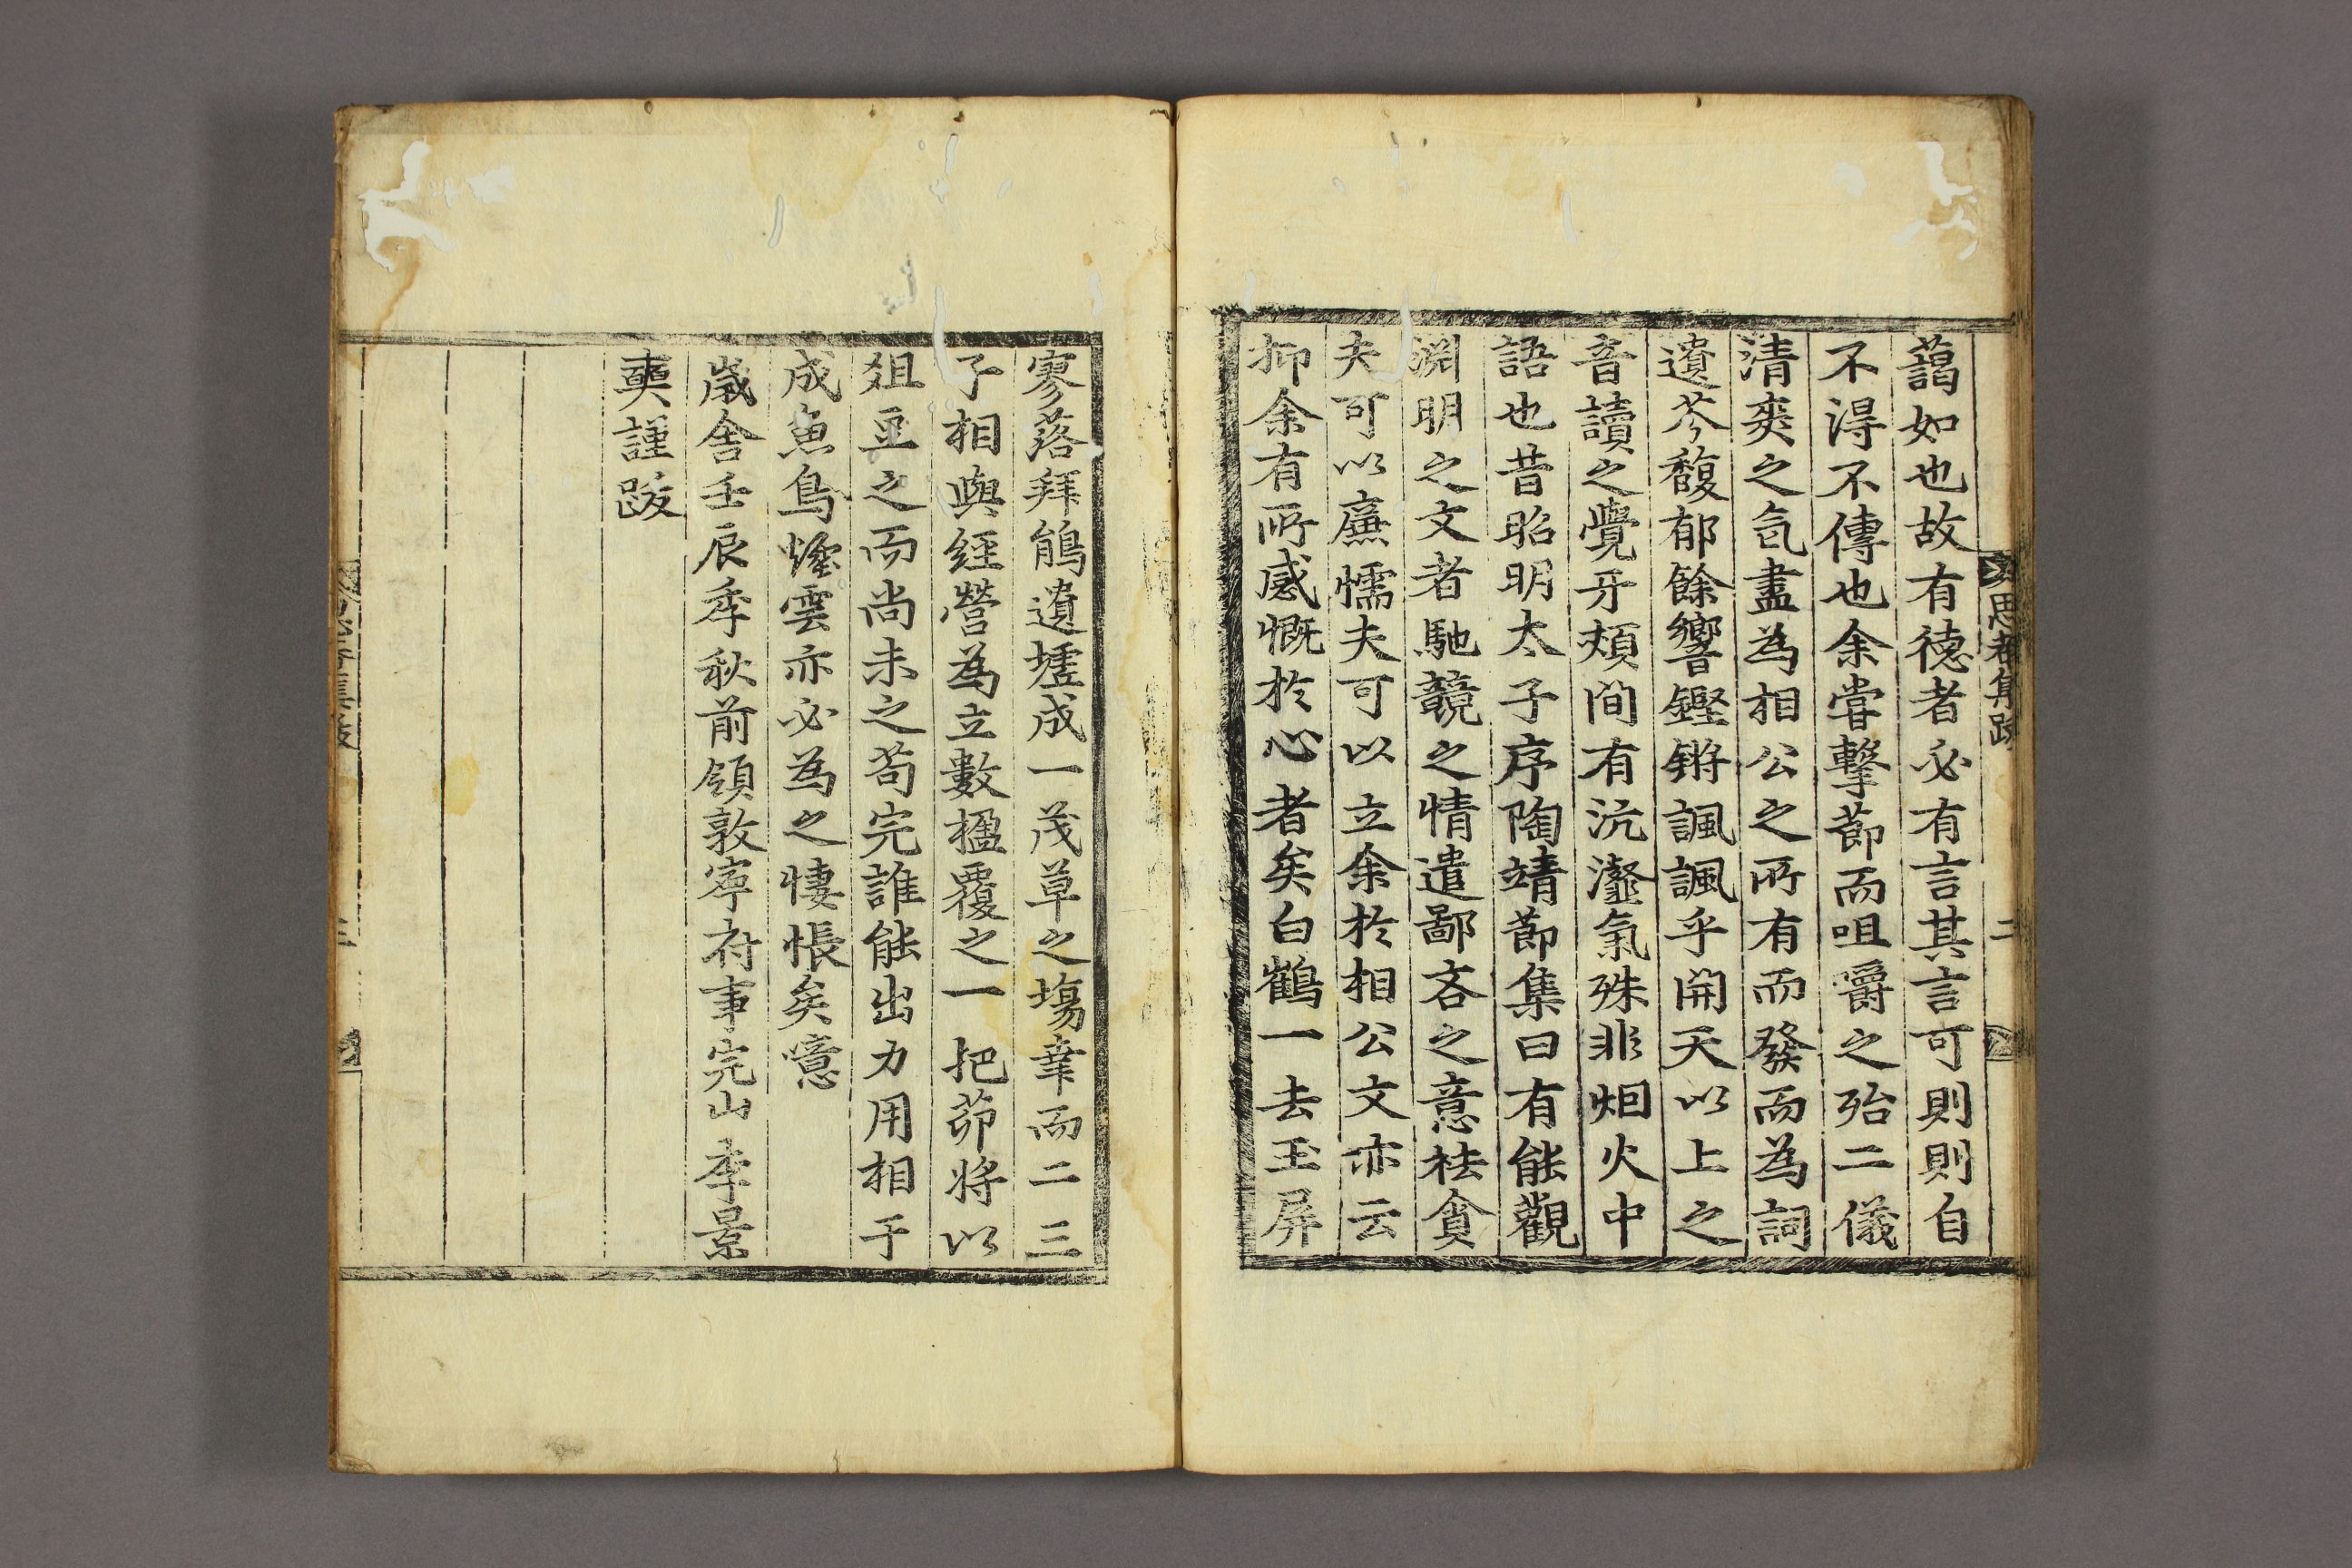 思菴集跋
二
藹如也故有德者必有言其言可則則自
不得不傳也余嘗擊節而咀嚼之殆二儀
清爽之氣盡為相公之所有而發而為詞
遺芬馥郁餘響鏗鏘諷諷乎開天以上之
音讀之覺牙頰間有沆瀣氣殊非烟火中
語也昔昭明太子序陶靖節集曰有能觀
淵明之文者馳競之情遣鄙吝之意袪貪
夫可以廉懦夫可以立余於相公文亦云
抑余有所感慨於心者矣白鶴一去玉屏
寥落拜鵑遺墟成一茂草之場幸而二三
子相與經營為立數楹覆之一把茆將以
俎豆之而尚未之苟完誰能出力用相于
成魚鳥煙雲亦必為之悽悵矣噫
歲舍壬辰季秋前領敦寧府事完山李景
奭謹跋